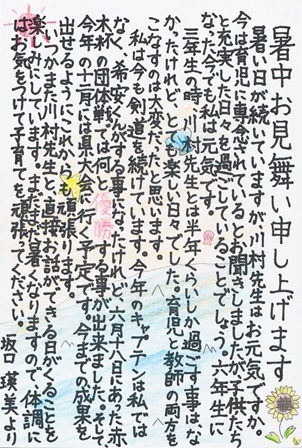 暑中お見舞い申し上げます
暑い日が続いていますが川村先生はお元気ですか。
今は育児に専念されているとお聞きしましたが子供たち
と充実した日々を過ごしていることでしょう。六年生に
なった今でも私は元気です。
三年生の時、川村先生とは半年くらいしか過ごす事はな
かったけれど、とても楽しい日々でした。育児と教師の両方を
こなすのは大変だったと思います。
私は今も剣道を続けています。今年のキャプテンは私では
なく、希安くんがする事になったけれど、六月十八日にあった赤
木杯の団体戦では何と優勝する事が出来ました。そして
今年の十一月には県大会へ行く予定です。今までの成果を
出せるようにこれからも頑張ります。
いつかまた川村先生と、直接お話ができる日がくることを
楽しみにしています。まだまだ暑くなりますので、体調に
はお気をつけて子育てを頑張ってください。
坂口 瑛美より